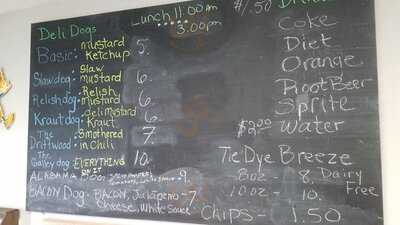 Deli Dogs
Lunch 11:00am
3:00pm
Basic: mustard Ketchup 5.
Slaw dog: Slaw mustard 6.
Relish dog: Relish mustard 6.
Kraut dog: deli mustard Kraut 6.
The Driftwood: Smothered in Chili 7.
The Galley dog: EVERYTHING ON IT 10.
ALABAMA DOG: 9.
BACON Dog: BACON, Jalapeño Cheese, White Sauce -7.
$1.50
Coke
Diet
Orange
Root Beer
Sprite
$2.00 Water
Tie Dye Breeze
8oz - 8. Dairy
10oz - 10. Free
Chips - 1.50